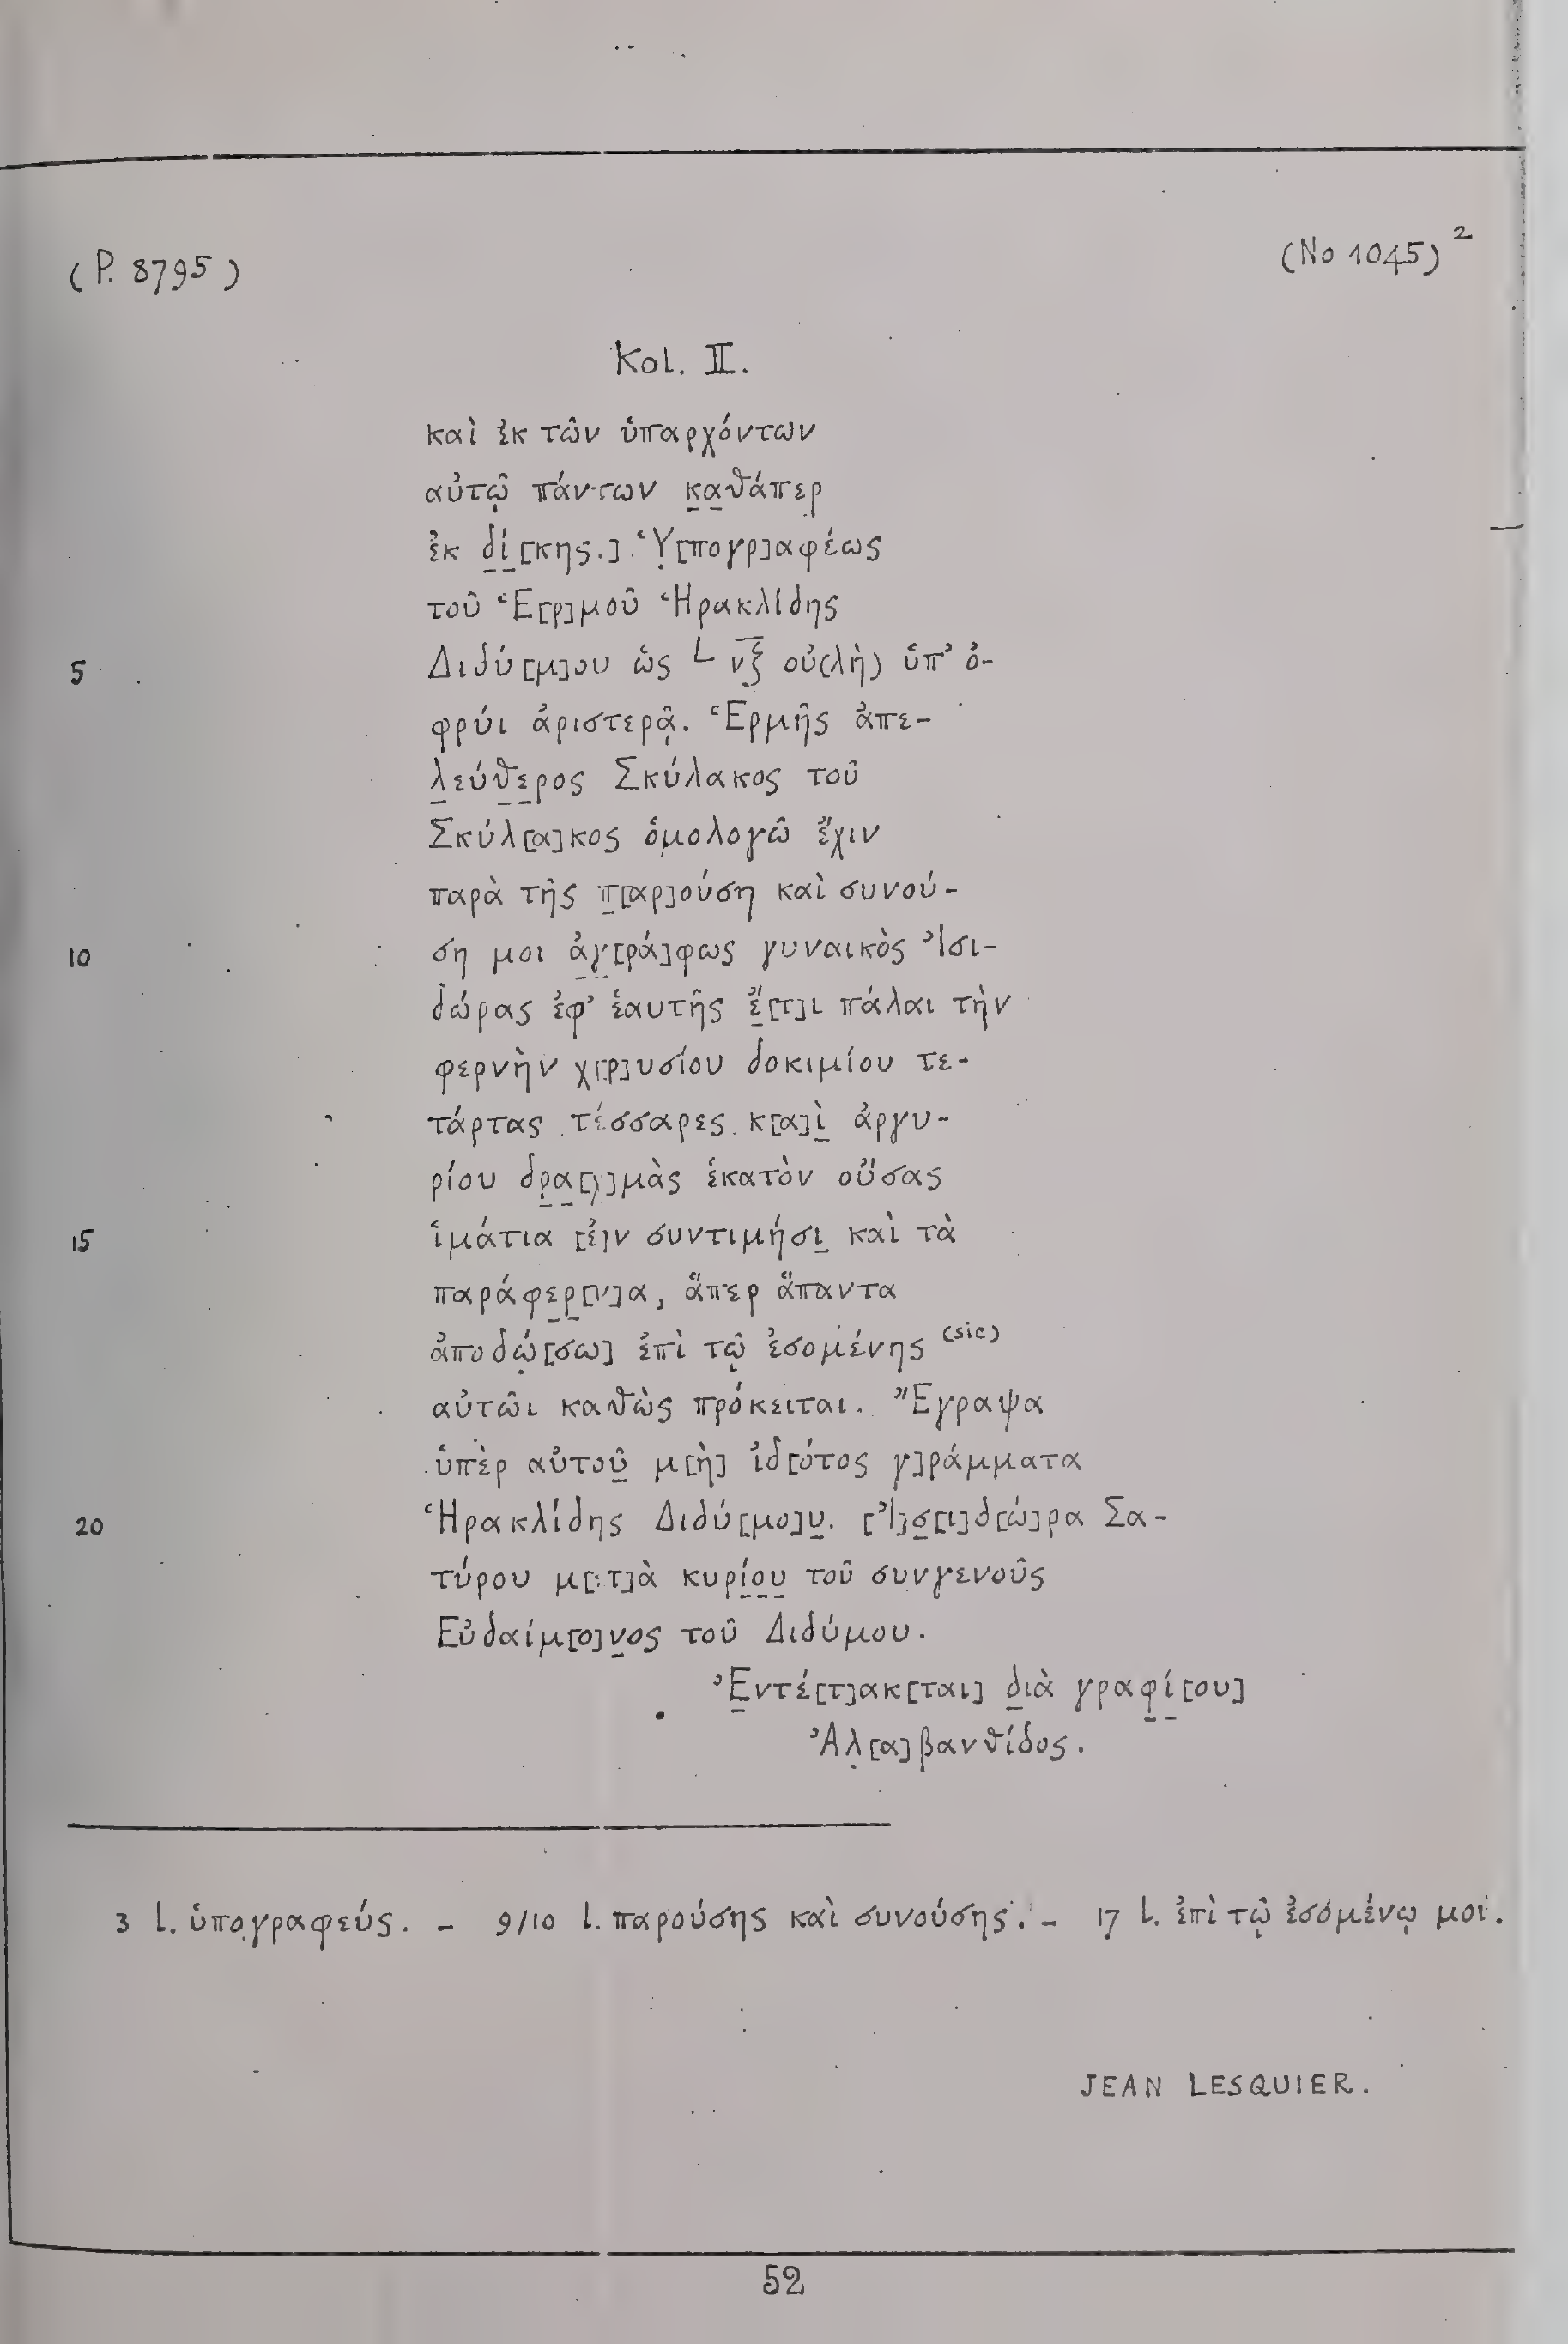 (P. 8795)
(No 1045)²
Kol. II.
καὶ ἐκ τῶν ὑπαρχόντων
αὐτῷ πάντων κ̣α̣θάπερ
ἐκ δ̣ί̣[κης.] Ὑ̣[πογρ]αφέως
τοῦ Ἑ[ρ]μοῦ Ἡρακλίδης
5 Διδύ[μ]ου ὡς L νξ̅ οὐ(λὴ) ὑπ’ ὀ-
φρύι ἀριστερᾷ. Ἑρμῆς ἀπε-
λ̣εύθ̣ε̣ρος Σκύλακος τοῦ
Σκύλ[α]κος ὁμολογῶ ἔχιν
παρὰ τῆς π̣[αρ]ούση καὶ συνού-
10 ση μοι ἀ̣γ̣[ρά]φως γυναικὸς Ἰσι-
δώρας ἐφ’ ἑαυτῆς ἔ̣[τ]ι πάλαι τὴν
φερνὴν χ[ρ]υσίου δοκιμίου τε-
τάρτας τέσσαρες κ[α]ὶ̣ ἀργυ-
ρίου δρ̣α̣[χ]μὰς ἑκατὸν οὔσας
15 ἱμάτια [ἐ]ν συντιμήσι̣ καὶ τὰ
παράφε̣ρ̣[ν]α, ἅπερ ἅπαντα
ἀποδώ̣[σω] ἐπὶ τῷ ἐσομένης (sic)
αὐτῶι καθὼς πρόκειται. Ἔγραψα
ὑπὲρ αὐτοῦ̣ μ[ὴ] ἰδ[ότος γ]ράμματα
20 Ἡρακλίδης Διδύ[μο]υ̣. [Ἰ]σ̣[ι]δ[ώ]ρα Σα-
τύρου μ[ετ]ὰ κυρί̣ο̣υ̣ τοῦ συνγενοῦς
Εὐδαίμ[ο]ν̣ος τοῦ Διδύμου.
Ἐ̣ντέ[τ]ακ[ται] δ̣ιὰ γραφ̣ί̣[ου]
Ἀλ̣[α]βανθίδος.
3 l. ὑπογραφεύς. – 9/10 l. παρούσης καὶ συνούσης. – 17 l. ἐπὶ τῷ ἐσομένῳ μοι.
JEAN LESQUIER.
52